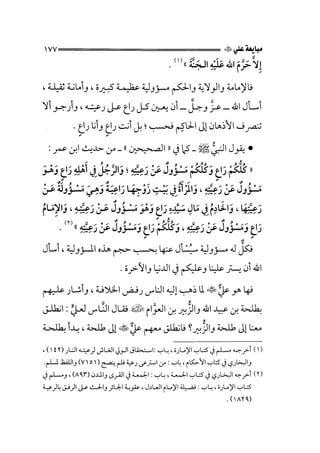 مبايعة علي ﷺ ١٧٧
إِلَّا حَرَّمَ اللهُ عَلَيْهِ الجَنَّةَ » (١) .
فالإمامة والولاية والحكم مسؤولية عظيمة كبيرة ، وأمانة ثقيلة ،
أسأل الله ـ عزَّ وجلَّ ـ أن يعين كل راع على رعيته ، وأرجو ألا
تنصرف الأذهان إلى الحاكم فحسب ؛ بل أنت راع وأنا راع .
• يقول النبيُّ ﷺ ـ كما في « الصحيحين » ـ من حديث ابن عمر :
« كُلُّكُمْ رَاعٍ وَكُلُّكُمْ مَسْؤُولٌ عَنْ رَعِيَّتِهِ ؛ وَالرَّجُلُ فِي أَهْلِهِ رَاعٍ وَهُوَ
مَسْؤُولٌ عَنْ رَعِيَّتِهِ ، وَالمَرْأَةُ فِي بَيْتِ زَوْجِهَا رَاعِيَةٌ وَهِيَ مَسْؤُولَةٌ عَنْ
رَعِيَّتِهَا ، وَالخَادِمُ فِي مَالِ سَيِّدِهِ رَاعٍ وَهُوَ مَسْؤُولٌ عَنْ رَعِيَّتِهِ ، وَالإِمَامُ
رَاعٍ وَمَسْؤُولٌ عَنْ رَعِيَّتِهِ ، وَكُلُّكُمْ رَاعٍ وَمَسْؤُولٌ عَنْ رَعِيَّتِهِ » (٢) .
فكلٌّ له مسؤولية سيُسْأل عنها بحسب حجم هذه المسؤولية ، أسأل
الله أن يستر علينا وعليكم في الدنيا والآخرة .
فها هو عليٌّ لما ذهب إليه الناس رفض الخلافة ، وأشار عليهم
بطلحة بن عبيد الله والزُّبير بن العوَّام فقال النَّاس لعليٍّ : انطلق
معنا إلى طلحة والزُّبير ؟ فانطلق معهم عليٌّ إلى طلحة ، بدأ بطلحة
(١) أخرجه مسلم في كتاب الإمارة ، باب : استحقاق الوالي الغاش لرعيته النار (١٤٢) ،
والبخاري في كتاب الأحكام ، باب : من استرعى رعية فلم ينصح (٧١٥١) واللفظ لمسلم .
(٢) أخرجه البخاري في كتاب الجمعة ، باب : الجمعة في القرى والمدن (٨٩٣) ، ومسلم في
كتاب الإمارة ، باب : فضيلة الإمام العادل ، عقوبة الجائر والحث على الرفق بالرعية
(١٨٢٩) .